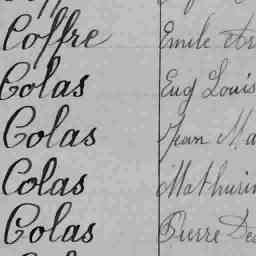 Coffre Emile
Colas Eug Louis
Colas Jean
Colas Mathurin
Colas Pierre